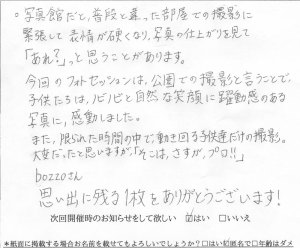 ○写真館だと、普段と違った部屋での撮影に
緊張して表情が硬くなり、写真の仕上がりを見て
「あれ？」っと思うことがあります。
今回のフォトセッションは、公園での撮影と言うことで、
子供たちは、ノビノビと自然な笑顔に躍動感のある
写真に、感動しました。
また、限られた時間の中で、動き回る子供達だけの撮影。
大変だったと思いますが、「そこは、さすが、プロ!!」
bozzoさん
思い出に残る1枚をありがとうございます!
次回開催時のお知らせをして欲しい ☑はい □いいえ
*紙面に掲載する場合お名前を載せてもよろしいでしょうか?□はい☑匿名で□年齢はダメ